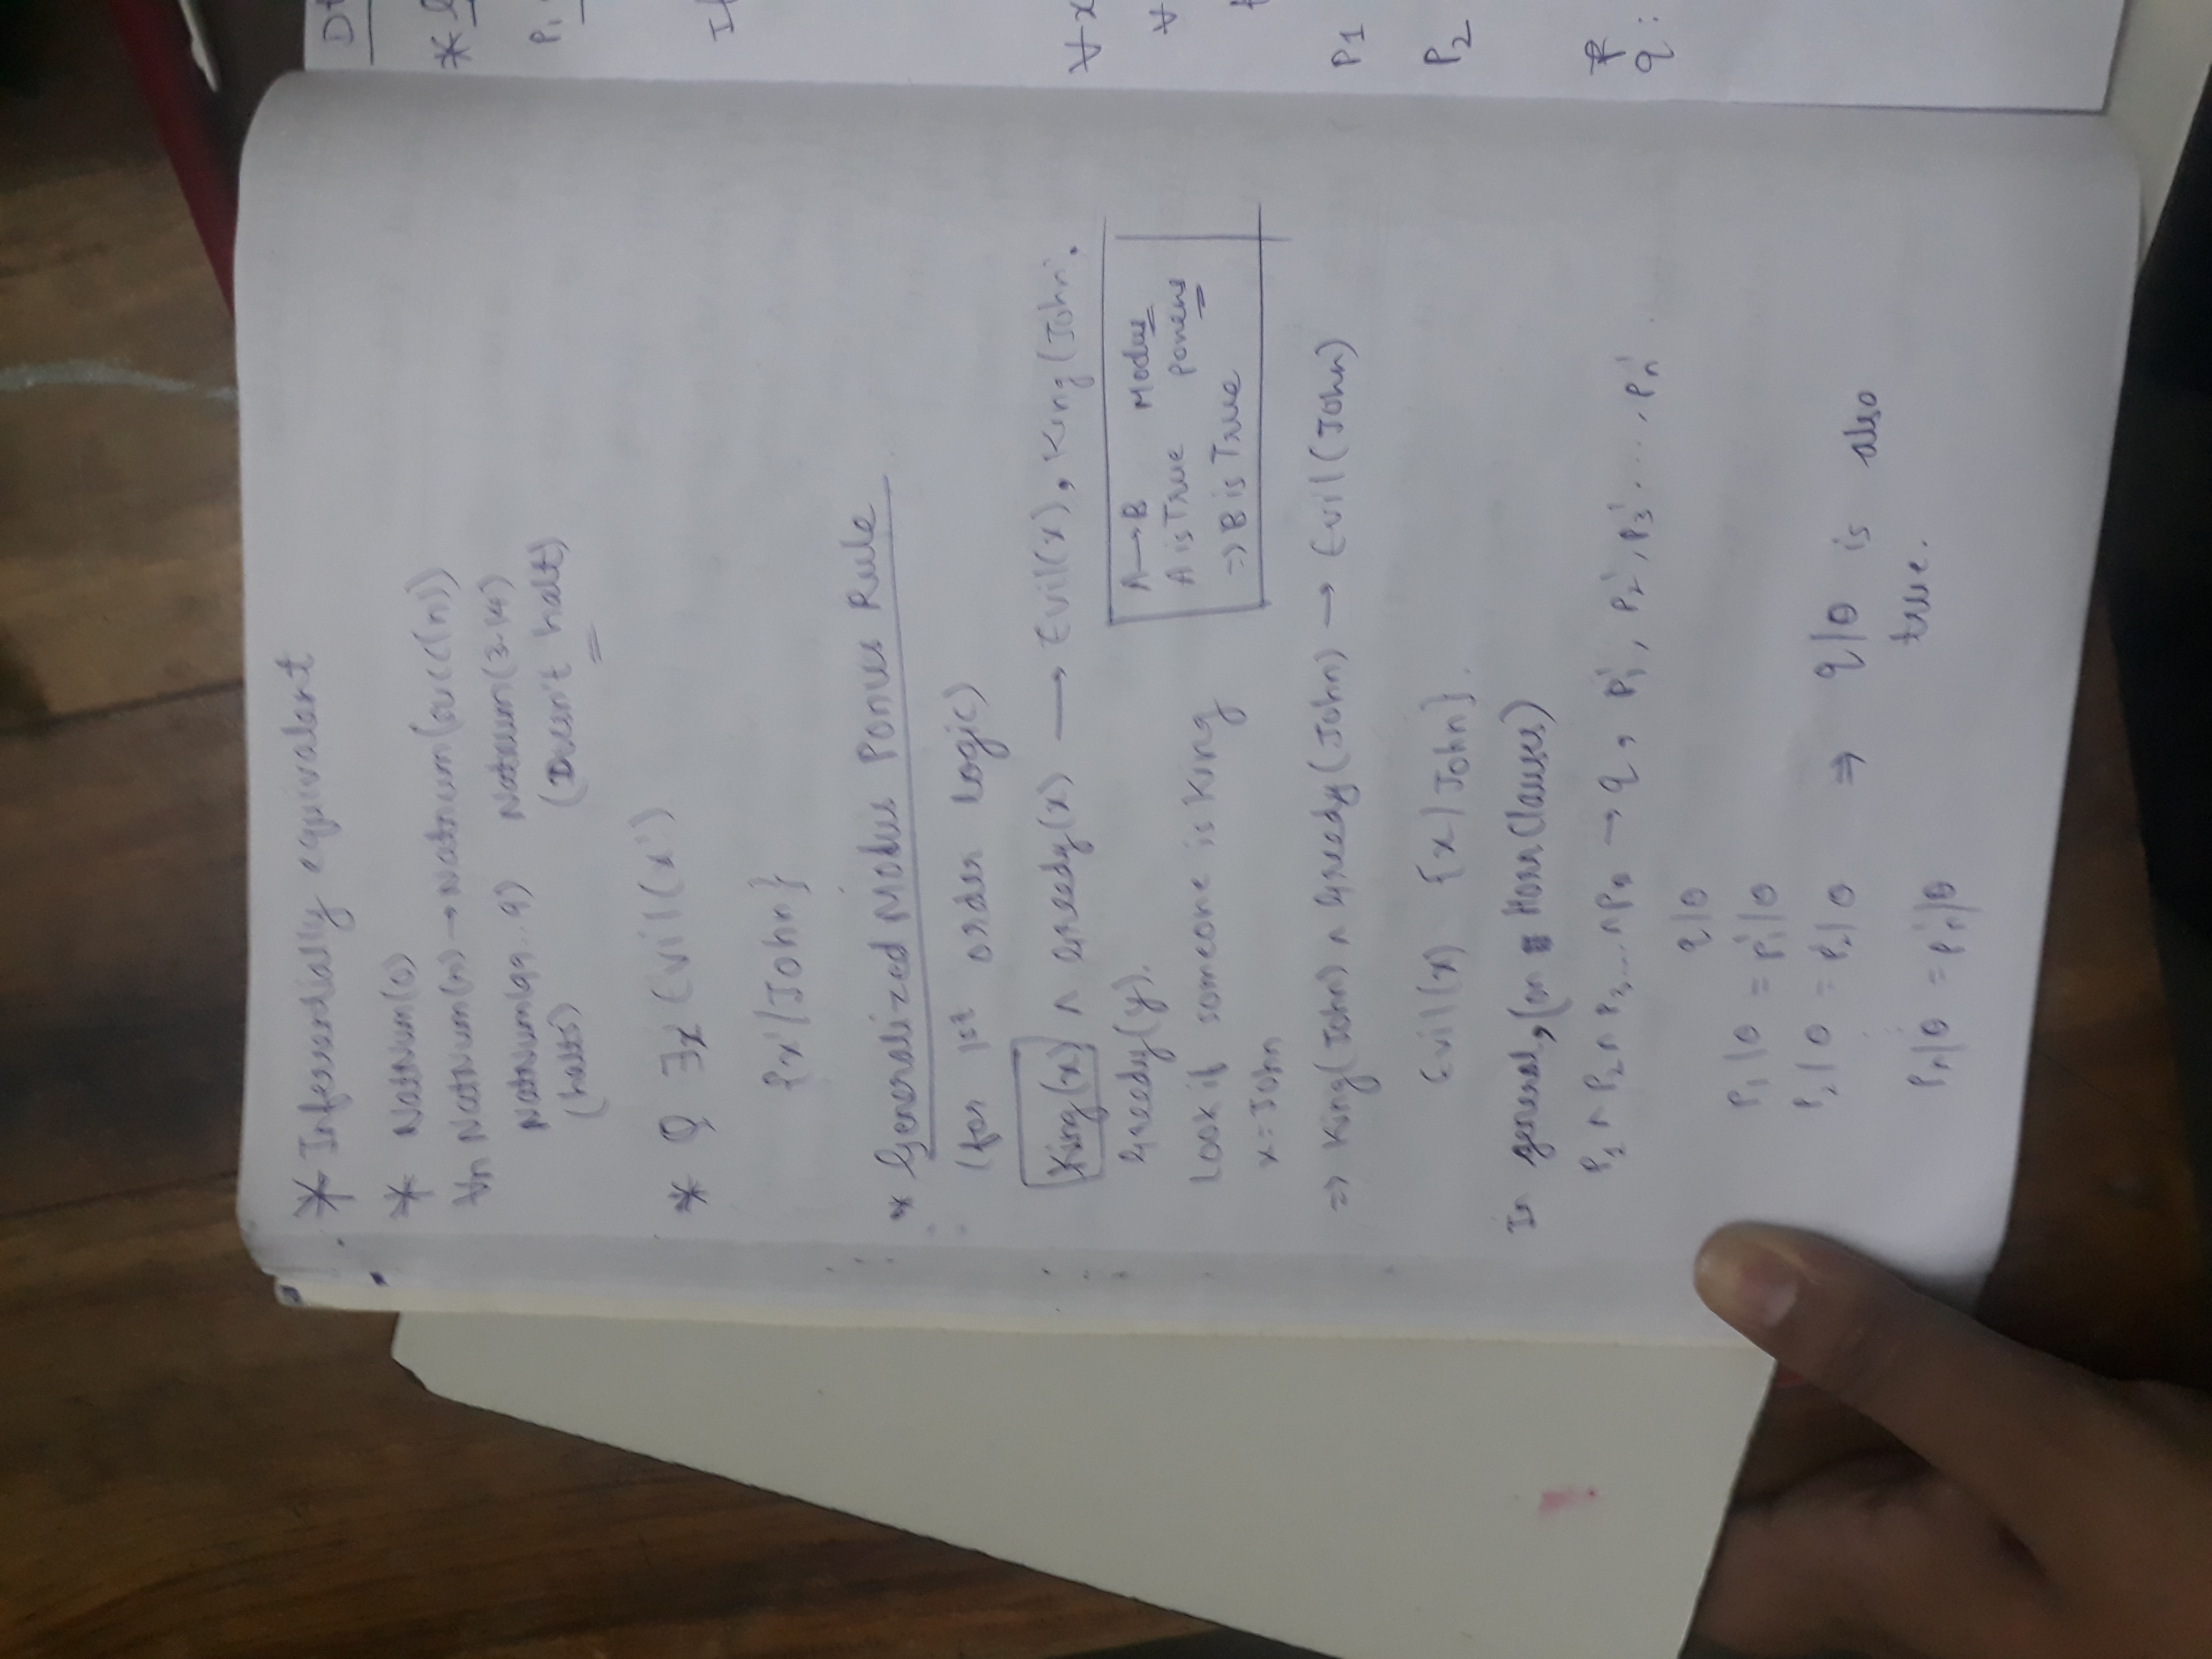 * Inferentially equivalent
* NatNum(0)
∀n NatNum(n) → NatNum(succ(n))
NatNum(99..9) NatNum(3.14)
(halts) (Doesn't halt)
* Q ∃x' Evil(x')
{x'/John}
* Generalized Modus Ponens Rule
(for 1st order logic)
King(x) ∧ Greedy(x) → Evil(x), King(John).
Greedy(y).
Look if someone is King
x=John
A→B Modus
A is True ponens
=> B is True
=> King(John) ∧ Greedy(John) → Evil(John)
Evil(x) {x/John}.
In general, (on Horn Clauses)
P1 ∧ P2 ∧ P3... ∧Pn → q, P1', P2', P3'...., Pn'.
q/θ
P1/θ = P1'/θ
P2/θ = P2'/θ ⇒ q/θ is also
true.
Pn/θ = Pn'/θ
*
P1
∀x
∀
P1
P2
q: